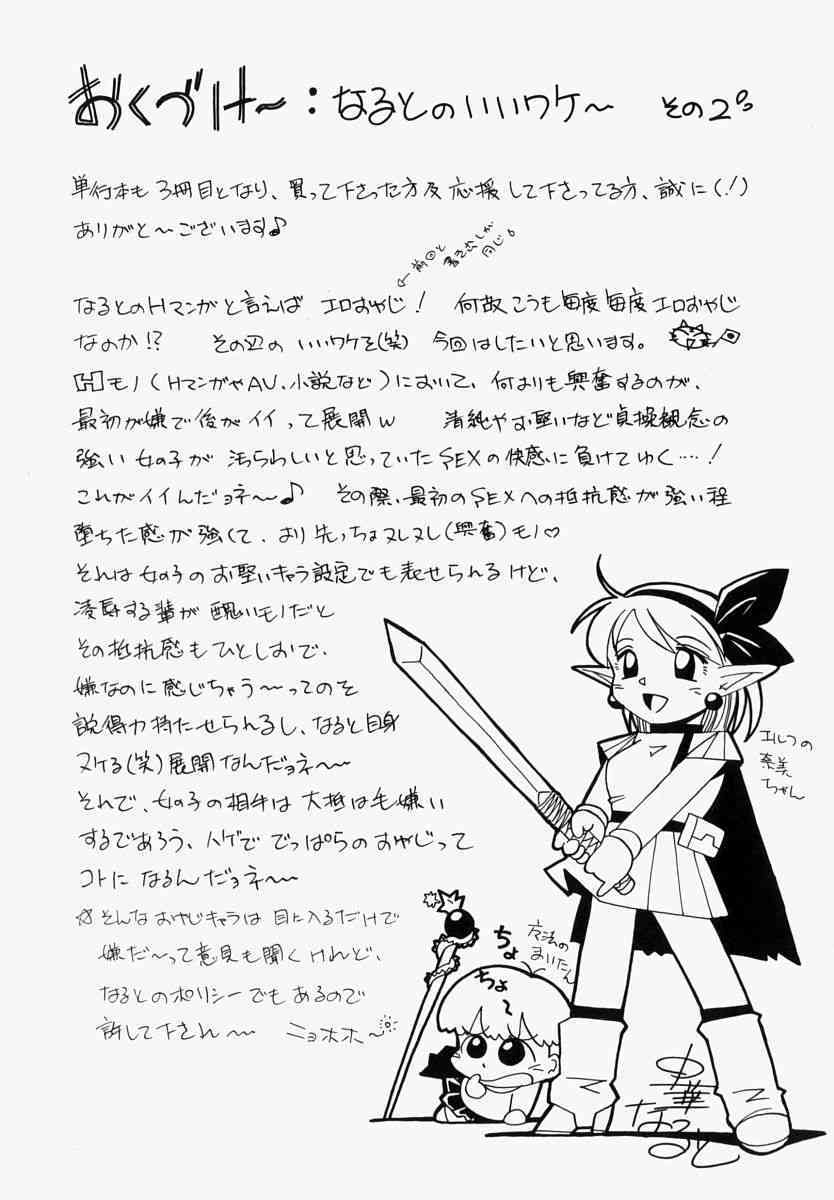 おくづけ〜:なるとのいいワケ〜 その2。
単行本も3冊目となり、買って下さった方及 応援して下さってる方、誠に(!)
ありがと〜ございます♪
←前回と
書き出しが
同じ。
なるとのHマンガと言えば エロおやじ! 何故こうも毎度毎度エロおやじ
なのか!? その辺の いいワケを(笑) 今回はしたいと思います。
Hモノ(HマンガやAV、小説など)において、何よりも興奮するのが、
最初が嫌で後がイイって展開w 清純やお堅いなど貞操観念の
強い女の子が 汚らわしいと思っていたSEXの快感に負けてゆく…!
これがイイんだョネ〜♪ その際、最初のSEXへの抵抗感が強い程
堕ちた感が強くて、より先っちょヌレヌレ(興奮)モノ♡
それは女の子のお堅いキャラ設定でも表せられるけど、
凌辱する輩が醜いモノだと
その抵抗感もひとしおで、
嫌なのに感じちゃう〜ってのを
説得力持たせられるし、なると自身
ヌケる(笑)展開なんだョネ〜
それで、女の子の相手は大抵は毛嫌い
するであろう、ハゲで でっぱらのおやじって
コトに なるんだョネ〜
☆そんなおやじキャラは 目に入るだけで
嫌だ〜って意見も聞くけれど、
なるとのポリシーでもあるので
許して下され〜 ニョホホ〜
エルフの
奈美
ちゃん
ちょ
ちょ
〜
魔法の
まいたん
中華
なると